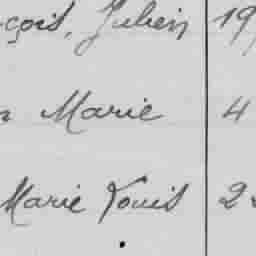 çois, Julien 19
Marie 4
Marie Louis 2